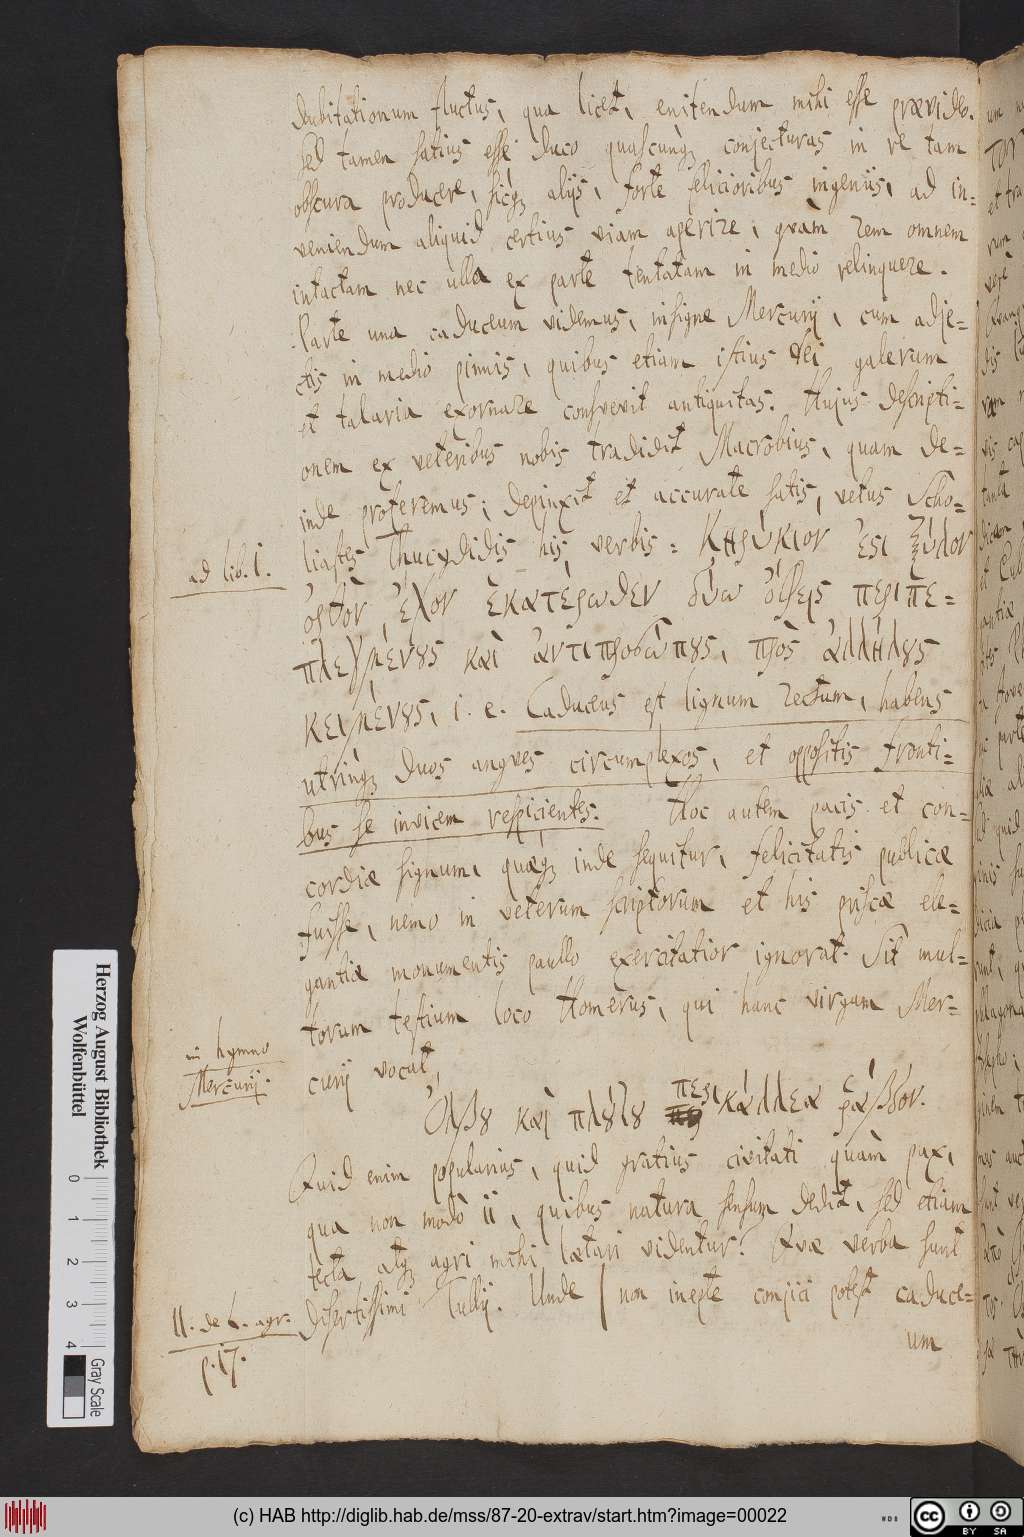 dubitationum fluctus, qua licet, enitendum mihi esse prævideo.
sed tamen satius esse duco quascunq; conjecturas in re tam
obscura producere, sicq; alijs, forte felicioribus ingeniis, ad in=
veniendum aliquid certius viam aperire, qvàm rem omnem
intactam nec ulla ex parte tentatam in medio relinquere.
Parte una caduceum videmus, insigne Mercurij, cum adje=
ctis in medio pinnis, quibus etiam istius dei galerum
et talaria exornare consvevit antiquitas. Hujus descripti=
onem ex veteribus nobis tradidit Macrobius, quam de=
inde proferemus; depinxit et accurate satis, vetus Scho=
liastes Thucydidis his, verbis = Κηρύκιον ἐςι ξύλον
ad lib. I.
ὀρθὸν, ἔχον ἑκατέρωθεν δύω ὄφεις περιπε=
πλεγμένȣς καὶ ἀντιπροσώπȣς, πρὸς ἀλλήλȣς
κειμένȣς, i. e. Caduceus est lignum rectum, habens
utrinq; duos angves circumplexos, et oppositis fronti=
bus se invicem respicientes. Hoc autem pacis et con=
cordiæ signum, quæq; inde sequitur, felicitatis publicæ
fuisse, nemo in veterum scriptorum et his priscæ ele=
gantiæ monumentis paullo exercitatior ignorat. Sit mul=
torum testium loco Homerus, qui hanc virgam Mer=
in hymno
Mercurij.
curij vocat,
Ὄλβȣ καὶ πλȣ́τȣ περικάλλεα ῥάβδον.
Quid enim popularius, quid gratius civitati quàm pax,
qua non modò ii, quibus natura sensum dedit, sed etiam
tecta atq; agri mihi lætari videntur? Qvæ verba sunt
II. de L. agr.
p. 17.
disertissimi Tullij. Unde non inepte conjici potest caduce=
um
Herzog August Bibliothek
Wolfenbüttel
0 1 2 3 4
Gray Scale
(c) HAB http://diglib.hab.de/mss/87-20-extrav/start.htm?image=00022
cc BY SA